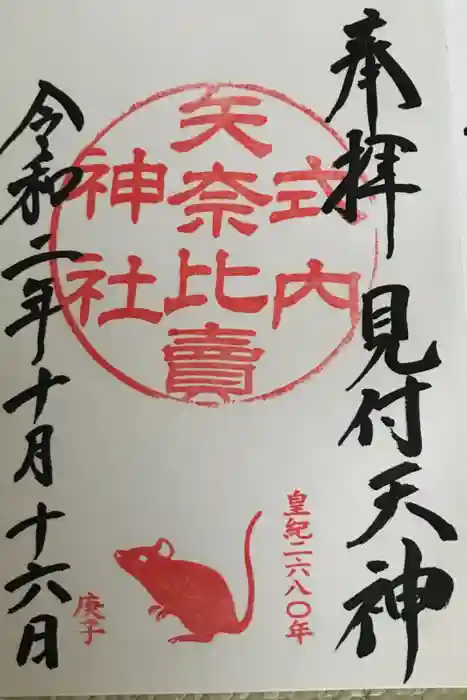 奉拝 見付天神
式内
矢奈比賣
神社
皇紀二六八〇年
庚子
令和二年十月十六日